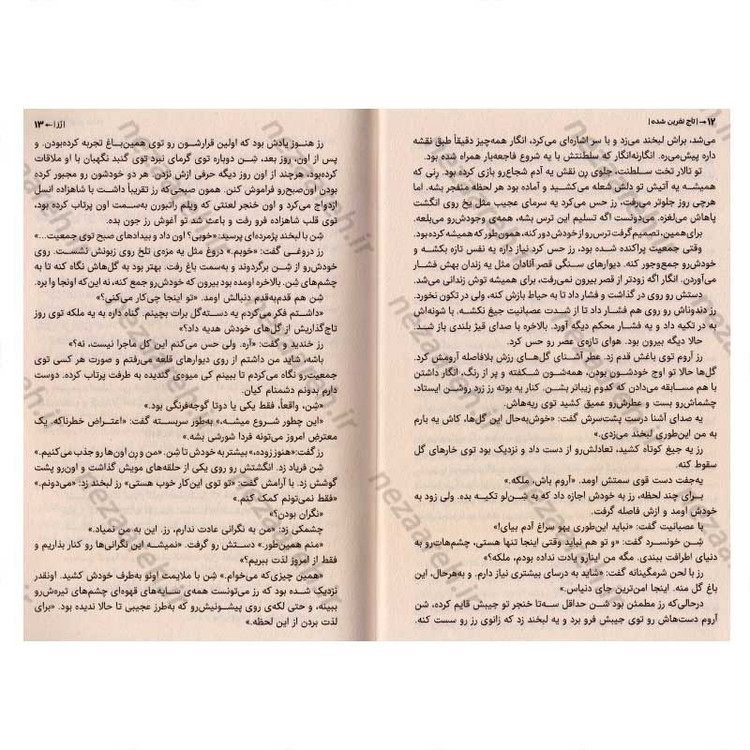 ۱۲ → |تاج نفرین شده|
می‌شد، براش لبخند می‌زد و با سر اشاره‌ای می‌کرد، انگار همه‌چیز دقیقاً طبق نقشه
داره پیش‌می‌ره. انگارنه‌انگار که سلطنتش با یه شروع فاجعه‌بار همراه شده بود.
تو تالار تخت سلطنت، جلوی رِن نقش یه آدم شجاع‌رو بازی کرده بود. رنی که
همیشه یه آتیش تو دلش شعله می‌کشید و آماده بود هر لحظه منفجر بشه. اما
هرچی روز جلوتر می‌رفت، رز حس می‌کرد یه سرمای عجیب مثل یخ روی انگشت
پاهاش می‌لغزه. می‌دونست اگه تسلیم این ترس بشه، همه‌ی وجودش‌رو می‌بلعه.
برای‌همین، تصمیم گرفت ترس‌رو از خودش دور کنه، همون‌طور که همیشه کرده بود.
وقتی جمعیت پراکنده شده بود، رز حس کرد نیاز داره یه نفس تازه بکشه و
خودش‌رو جمع‌وجور کنه. دیوارهای سنگی قصر آنادان مثل یه زندان بهش فشار
می‌آوردن. انگار اگه زودتر از قصر بیرون نمی‌رفت، برای همیشه توش زندانی می‌شد.
دستش رو روی در گذاشت و فشار داد تا به حیاط بازش کنه، ولی در تکون نخورد.
رز دندوناش رو روی هم فشار داد تا از شدت عصبانیت جیغ نکشه. با شونه‌اش
به در تکیه داد و یه فشار محکم دیگه آورد. بالاخره با صدای قیژ بلندی باز شد.
حالا دیگه بیرون بود. هوای تازه‌ی عصر رو حس کرد.
رز آروم توی باغش قدم زد. عطر آشنای گل‌های رزش بلافاصله آرومش کرد.
گل‌ها حالا تو اوج خودشون بودن، همه‌شون شکفته و پر از رنگ، انگار داشتن
با هم مسابقه می‌دادن که کدوم زیباتر بشن. کنار یه بوته رز زرد روشن ایستاد،
چشماش‌رو بست و عطرش‌رو عمیق کشید توی ریه‌هاش.
یه صدای آشنا درست پشت‌سرش گفت: «خوش‌به‌حال این گل‌ها، کاش یه بارم
به من این‌طوری لبخند می‌زدی.»
رز یه جیغ کوتاه کشید، تعادلش‌رو از دست داد و نزدیک بود توی خارهای گل
سقوط کنه.
یه‌جفت دست قوی سمتش اومد. «آروم باش، ملکه.»
برای چند لحظه، رز به خودش اجازه داد که به شن‌لو تکیه بده. ولی زود به
خودش اومد و ازش فاصله گرفت.
با عصبانیت گفت: «نباید این‌طوری یهو سراغ آدم بیای!»
شِن خونسرد گفت: «و تو هم نباید وقتی اینجا تنها هستی، چشم‌هات‌رو به
دنیای اطرافت ببندی. مگه من اینارو یادت نداده بودم، ملکه؟»
رز با لحن شرمگینانه گفت: «شاید به درسای بیشتری نیاز دارم. و به‌هرحال، این
باغ گل منه. اینجا امن‌ترین جای دنیاس.»
درحالی‌که رز مطمئن بود شن حداقل سه‌تا خنجر تو جیبش قایم کرده، شن
آروم دست‌هاش رو توی جیبش فرو برد و یه لبخند زد که زانوی رز رو سست کنه.
|رُز| ← ۱۳
رز هنوز یادش بود که اولین قرارشون رو توی همین‌باغ تجربه کرده‌بودن. و
پس از اون، روز بعد، شِن دوباره توی گرمای نبرد توی گنبد نگهبان با او ملاقات
کرده‌بود، هرچند از اون روز دیگه حرفی ازش نزدن. هر دو خودشون رو مجبور کرده
بودن اون‌صبح‌رو فراموش کنن. همون صبحی‌که رز تقریباً داشت با شاهزاده انسل
ازدواج می‌کرد و اون خنجر لعنتی که ویلم راتبورن به‌سمت اون پرتاب کرده بود،
توی قلب شاهزاده فرو رفت و باعث شد تو آغوش رز جون بده.
شِن با لبخند پژمرده‌ای پرسید: «خوبی؟ اون داد و بیدادهای صبح توی جمعیت...»
رز دروغی گفت: «خوبم.» دروغ مثل یه مزه‌ی تلخ روی زبونش نشست. روی
خودش‌رو از شِن برگردوند و به‌سمت باغ رفت. بهتر بود به گل‌هاش نگاه کنه تا به
چشم‌های شِن. بالاخره اومده بود بیرون که خودش‌رو جمع کنه، نه این‌که اونجا وا بره.
شِن هم قدم‌به‌قدم دنبالش اومد. «تو اینجا چی‌کار می‌کنی؟»
«داشتم فکر می‌کردم یه دسته‌گل برات بچینم. گناه داره به یه ملکه توی روز
تاج‌گذاریش از گل‌های خودش هدیه داد؟»
رز خندید و گفت: «آره. ولی حس می‌کنم این کل ماجرا نیست، نه؟»
باشه، شاید من داشتم از روی دیوارهای قلعه می‌رفتم و صورت هر کسی توی
جمعیت‌رو نگاه می‌کردم تا ببینم کی میوه‌ی گندیده به طرفت پرتاب کرده. دوست
دارم بدونم دشمنام کیان.
«شِن، واقعاً، فقط یکی یا دوتا گوجه‌فرنگی بود.»
«این چطور شروع میشه،» به‌طور سربسته گفت: «اعتراض خطرناکه. یک
معترض امروز می‌تونه فردا شورشی بشه.»
رز گفت: «هنوز زوده،» بیشتر به خودش تا شِن. «من و رِن اون‌ها رو جذب می‌کنیم.»
شِن فریاد زد. انگشتش رو روی یکی از حلقه‌های مویش گذاشت و اون‌رو پشت
گوشش زد. با آرامش گفت: «تو توی این‌کار خوب هستی» رز لبخند زد: «می‌دونم.»
«فقط نمی‌تونم کمک کنم.»
«نگران بودن؟»
چشمکی زد: «من به نگرانی عادت ندارم، رز. این به من نمیاد.»
«منم همین‌طور.» دستش رو گرفت. «نمیشه این نگرانی‌ها رو کنار بذاریم و
فقط از امروز لذت ببریم؟»
«همین چیزی‌که می‌خوام.» شِن با ملایمت اونو به‌طرف خودش کشید. اونقدر
نزدیک شده بود که رز می‌تونست همه‌ی سایه‌های قهوه‌ای چشم‌های تیره‌ش‌رو
ببینه، و حتی لکه‌ی روی پیشونیش‌رو که به‌طرز عجیبی تا حالا ندیده بود. «برای
لذت بردن از این لحظه.»
nezaaleh.ir